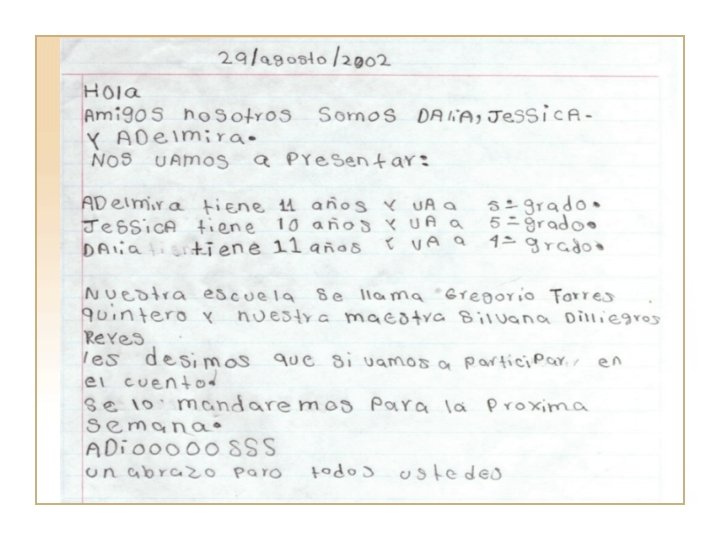 29/agosto/2002
Hola
Amigos nosotros somos DAliA, JeSSiCA-
Y ADelmira.
NOS VAmos a Presentar:
ADelmira tiene 11 años Y VA a 5º grado.
JeSSiCA tiene 10 años Y VA a 5º grado.
DAlia tiene 11 años Y VA a 4º grado.
Nuestra escuela se llama Gregorio Torres
quintero Y nuestra maestra Silvana Dilliegros
Reyes
les desimos que si vamos a participar, en
el cuento.
Se lo mandaremos Para la Proxima
semana.
ADiOOOOO SSS
un abrazo para todos ustedes